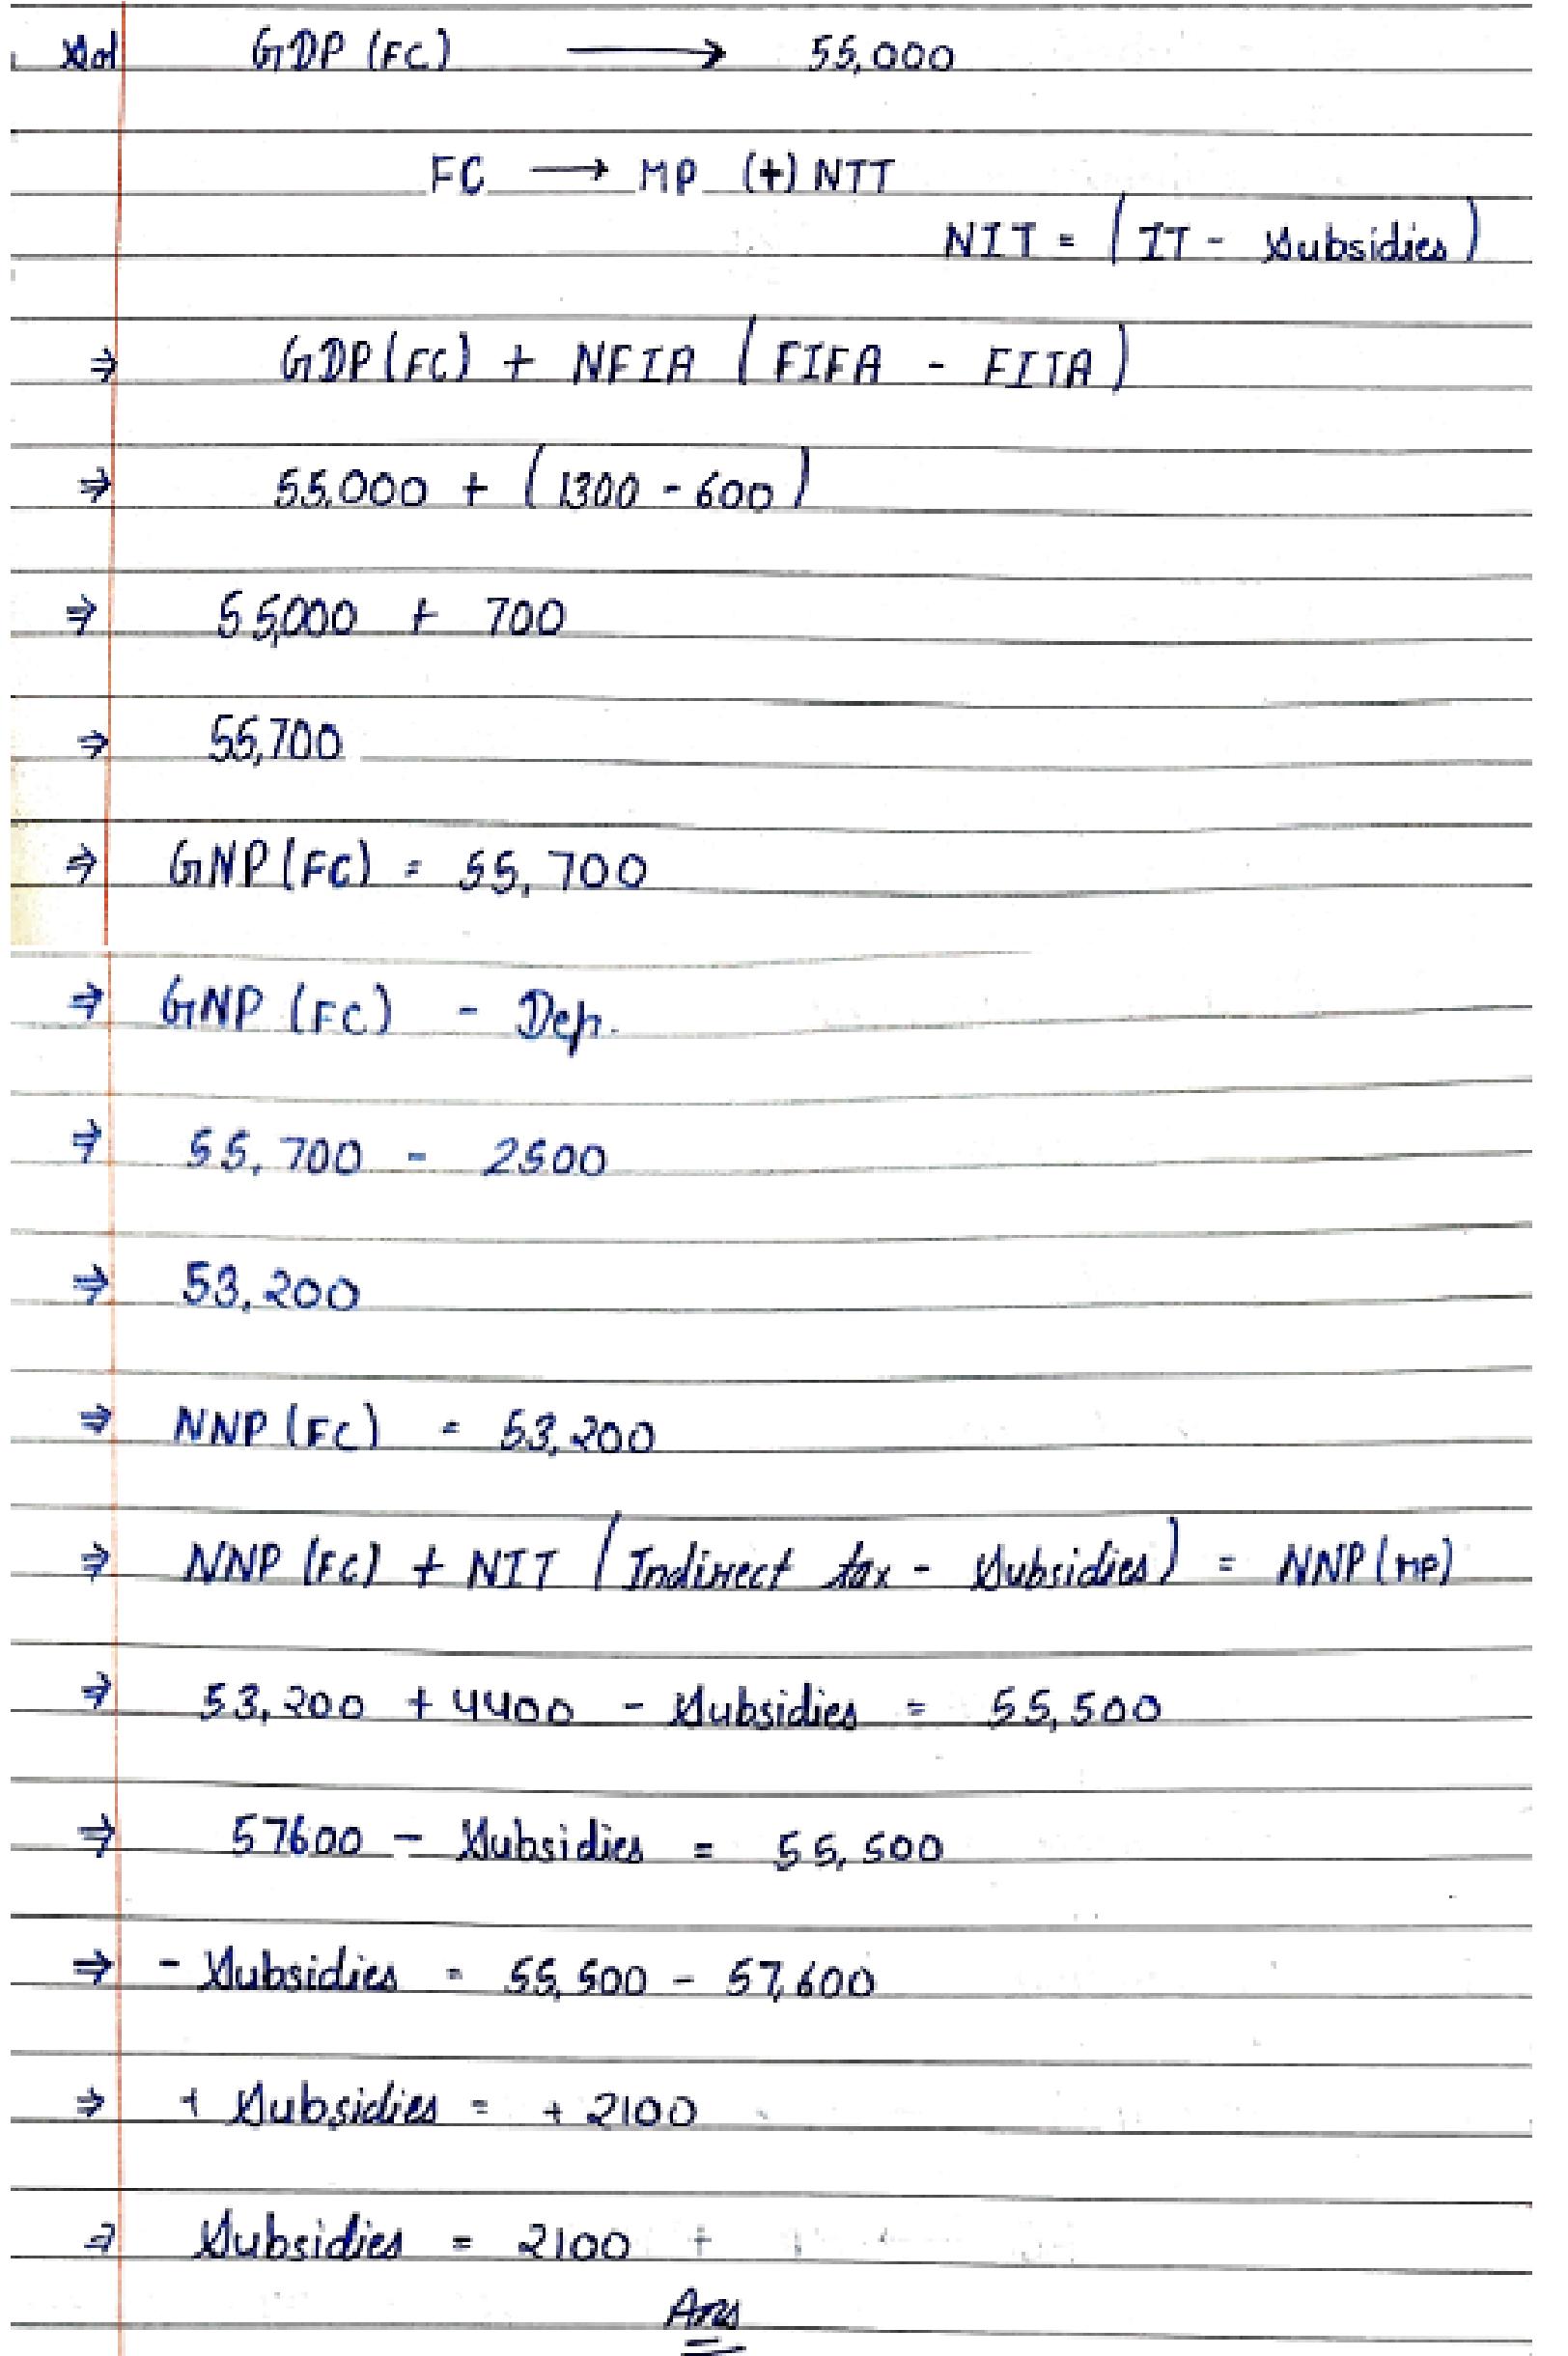 Sol GDP (FC) → 55,000
FC → MP (+) NTT
NIT = (IT - Subsidies)
⇒ GDP(FC) + NFIA (FIFA - FITA)
⇒ 55,000 + (1300 - 600)
⇒ 55,000 + 700
⇒ 55,700
⇒ GNP(FC) = 55,700
⇒ GNP (FC) - Dep.
⇒ 55,700 - 2500
⇒ 53,200
⇒ NNP (FC) = 53,200
⇒ NNP (FC) + NIT (Indirect tax - Subsidies) = NNP(MP)
⇒ 53,200 + 4400 - Subsidies = 55,500
⇒ 57600 - Subsidies = 55,500
⇒ - Subsidies = 55,500 - 57,600
⇒ + Subsidies = + 2100
⇒ Subsidies = 2100
Ans